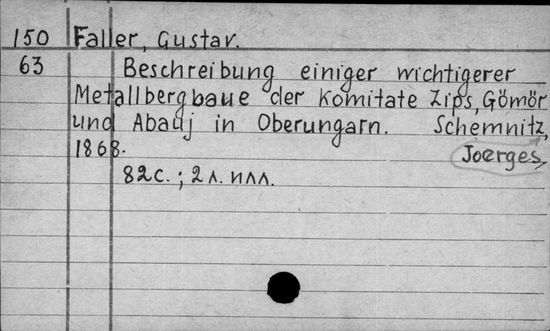 150 Faller, Gustav.
63 Beschreibung einiger wichtigerer
Metallbergbaue der Komitate Zips, Gömör
und Abauj in Oberungarn. Schemnitz,
1868. Joerges,
82с.; 2 л. илл.